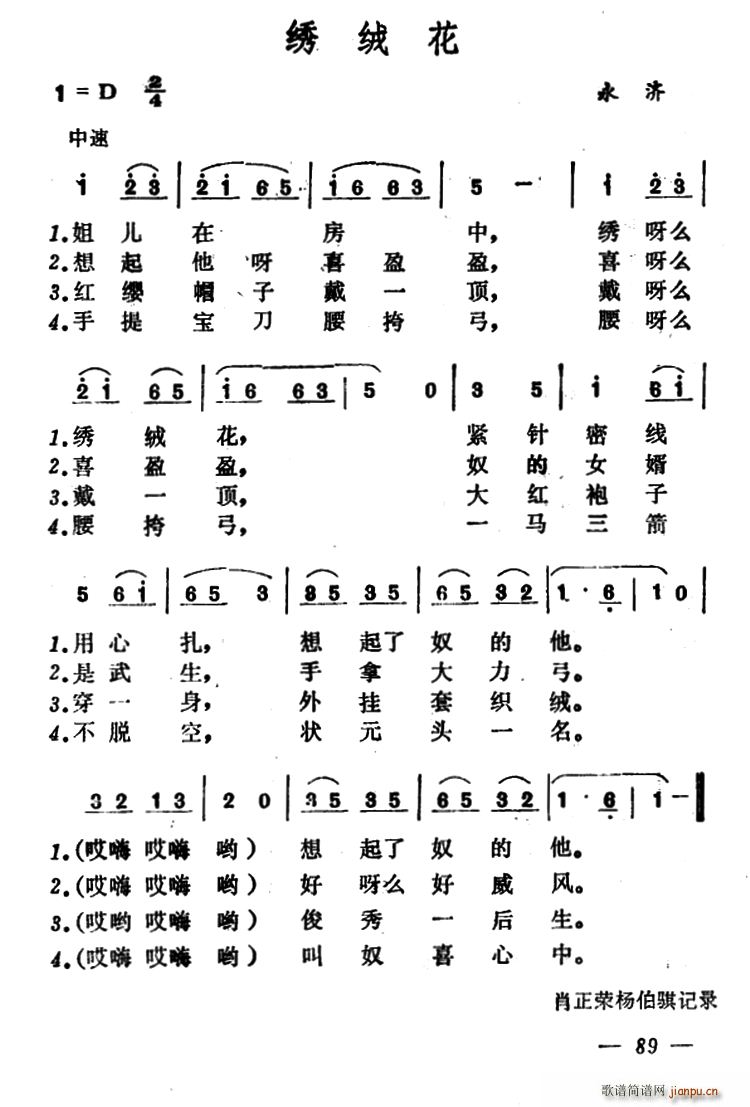 绣绒花
1=D 2/4 永济
中速
i̇ 2̇3̇ | 2̇i̇ 65 | i̇6 63 | 5 － | i̇ 2̇3̇ |
1.姐儿在房中，绣呀么
2.想起他呀喜盈盈，喜呀么
3.红缨帽、子戴一顶，戴呀么
4.手提宝刀腰挎弓，腰呀么
2̇i̇ 65 | i̇6 63 | 5 0 | 3 5 | i̇ 6i̇ |
1.绣绒花，紧针密线
2.喜盈盈，奴的女婿
3.戴一顶，大红袍子
4.腰挎弓，一马三箭
5 6i̇ | 65 3 | 35 35 | 65 32 | 1·6̣ | 10 |
1.用心扎，想起了奴的他。
2.是武生，手拿大力弓。
3.穿一身，外挂套织绒。
4.不脱空，状元头一名。
32 13 | 2 0 | 35 35 | 65 32 | 1·6̣ | 1－ ‖
1.(哎嗨 哎嗨 哟) 想起了奴的他。
2.(哎嗨 哎嗨 哟) 好呀么好威风。
3.(哎哟 哎嗨 哟) 俊秀一后生。
4.(哎嗨 哎嗨 哟) 叫奴喜心中。
肖正荣杨伯骐记录
— 89 —
歌谱简谱网 jianpu.cn